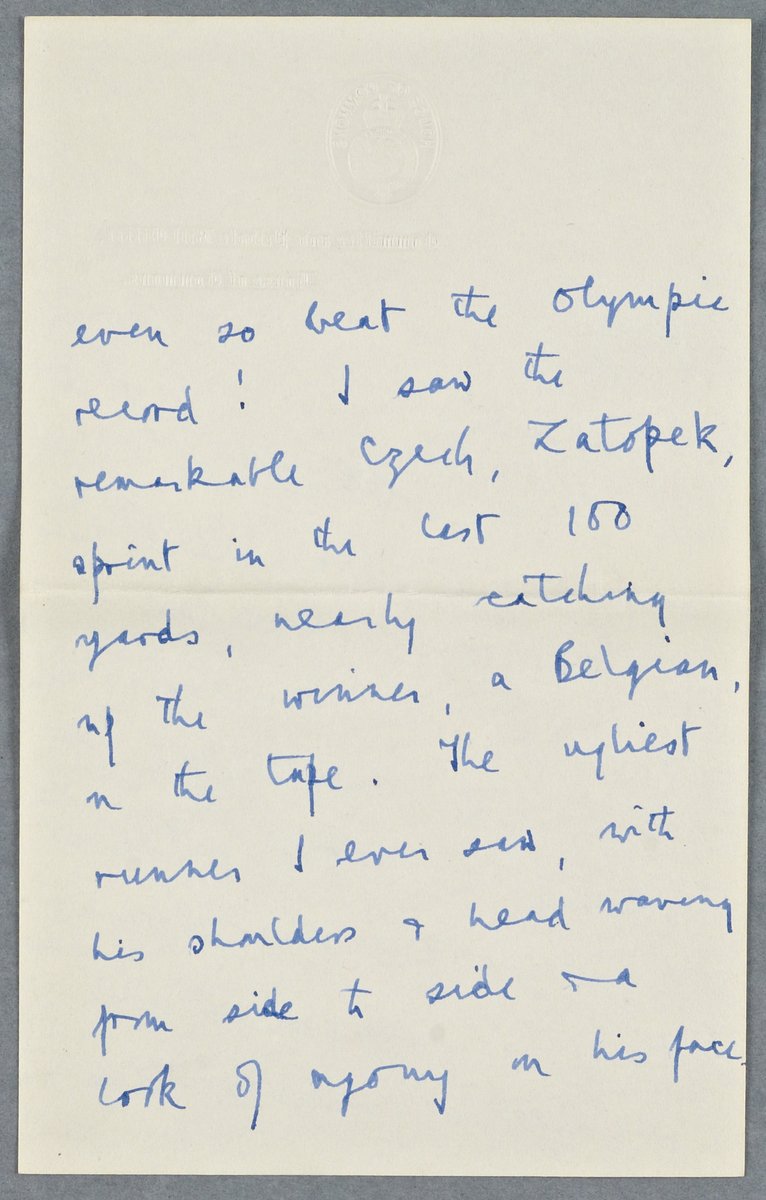 even so beat the Olympic
record! I saw the
remarkable Czech, Zatopek,
sprint in the last 100
yards, nearly catching
up the winner, a Belgian,
on the tape. The ugliest
runner I ever saw, with
his shoulders & head waving
from side to side & a
look of agony on his face.